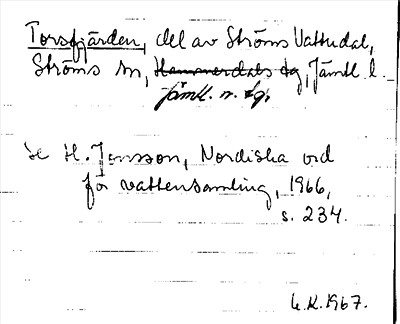 Torsfjärden, del av Ströms Vattudal,
Ströms sn, Hammerdals tg, Jämtl. l.
jämtl. n. dg.
se H. Jonsson, Nordiska ord
för vattensamling, 1966,
s. 234.
L.K. 1967.